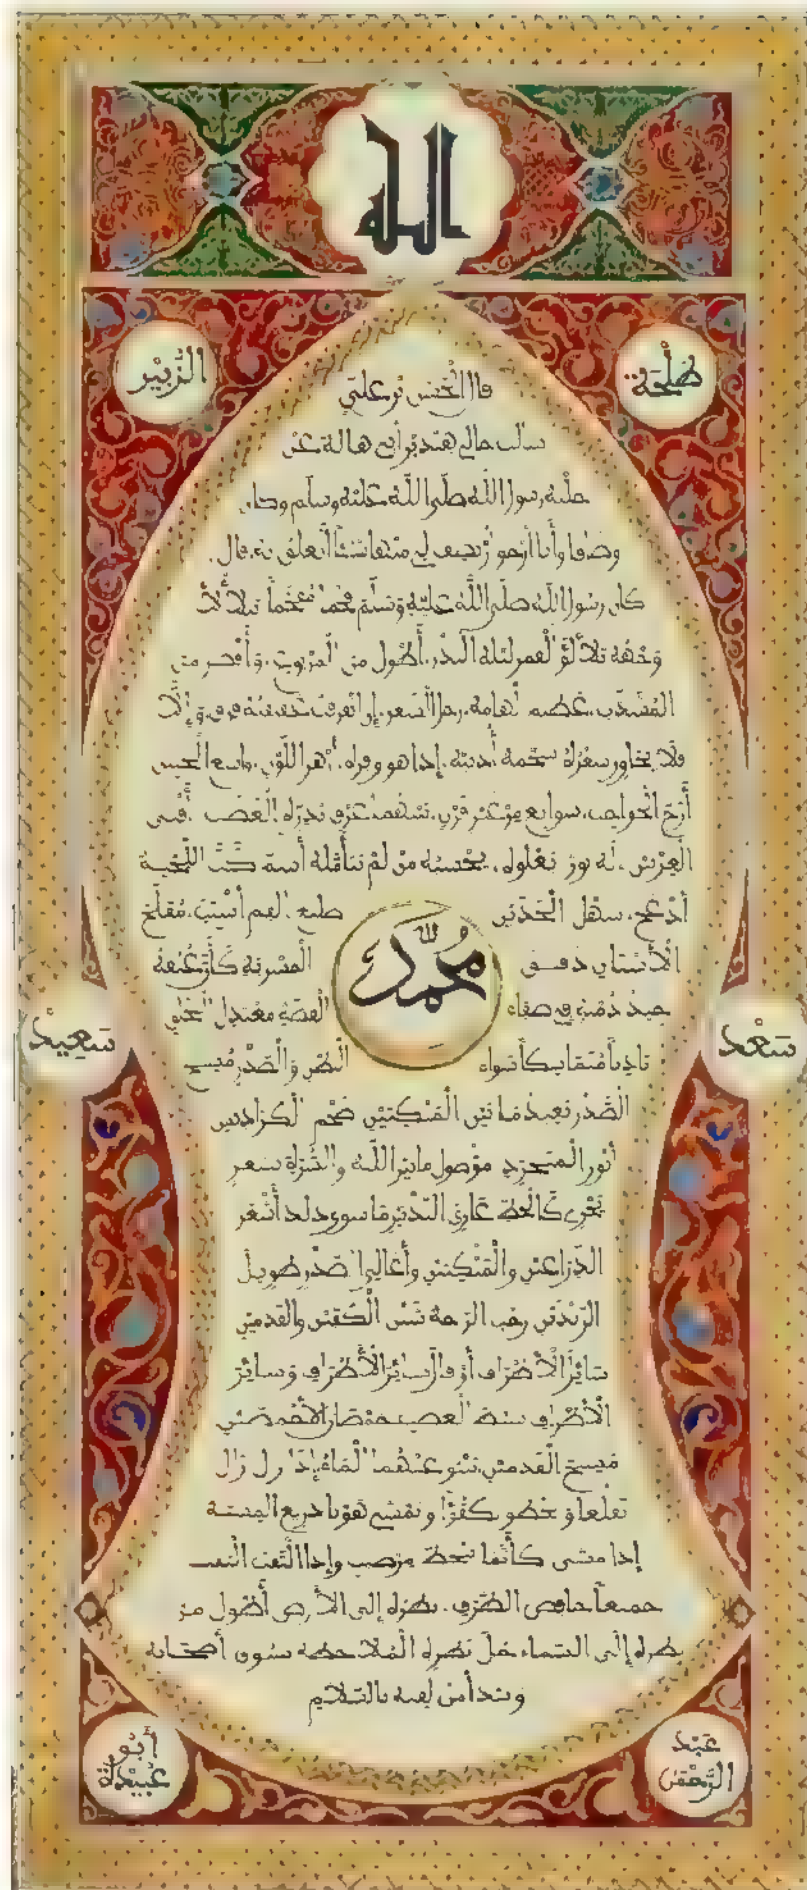 الله
طلحة
الزبير
قال الحسن بن علي
سألت خالي هند بن أبي هالة عن
حلية رسول الله صلى الله عليه وسلم وكان
وصافا وأنا أرجو أن يصف لي منها شيئا أتعلق به، قال
كان رسول الله صلى الله عليه وسلم فخما مفخما يتلألأ
وجهه تلألؤ القمر ليلة البدر، أطول من المربوع، وأقصر من
المشذب، عظيم الهامة، رجل الشعر، إن انفرقت عقيقته فرق، وإلا
فلا يجاوز شعره شحمة أذنيه، إذا هو وفره، أزهر اللون، واسع الجبين
أزج الحواجب، سوابغ من غير قرن، بينهما عرق يدره الغضب، أقنى
العرنين، له نور يعلوه، يحسبه من لم يتأمله أشم كث اللحية
أدعج، سهل الخدين ضليع الفم أشنب، مفلج
الأسنان دقيق المسربة كأن عنقه
جيد دمية في صفاء الفضة معتدل الخلق
بادنا متماسكا سواء البطن والصدر مسيح
محمد
سعد
سعيد
الصدر بعيد ما بين المنكبين ضخم الكراديس
أنور المتجرد موصول ما بين اللبة والسرة بشعر
يجري كالخط عاري الثديين ما سوى ذلك أشعر
الذراعين والمنكبين وأعالي الصدر طويل
الزندين رحب الراحة شثن الكفين والقدمين
سائل الأطراف أو قال سائن الأطراف وسائر
الأطراف سبط العصب خمصان الأخمصين
مسيح القدمين ينبو عنهما الماء إذا زال زال
تقلعا ويخطو تكفؤا ويمشي هونا ذريع المشية
إذا مشى كأنما ينحط من صبب وإذا التفت التفت
جميعا خافض الطرف، نظره إلى الأرض أطول من
نظره إلى السماء جل نظره الملاحظة يسوق أصحابه
ويبدأ من لقيه بالسلام
عبد الرحمن
أبو عبيدة